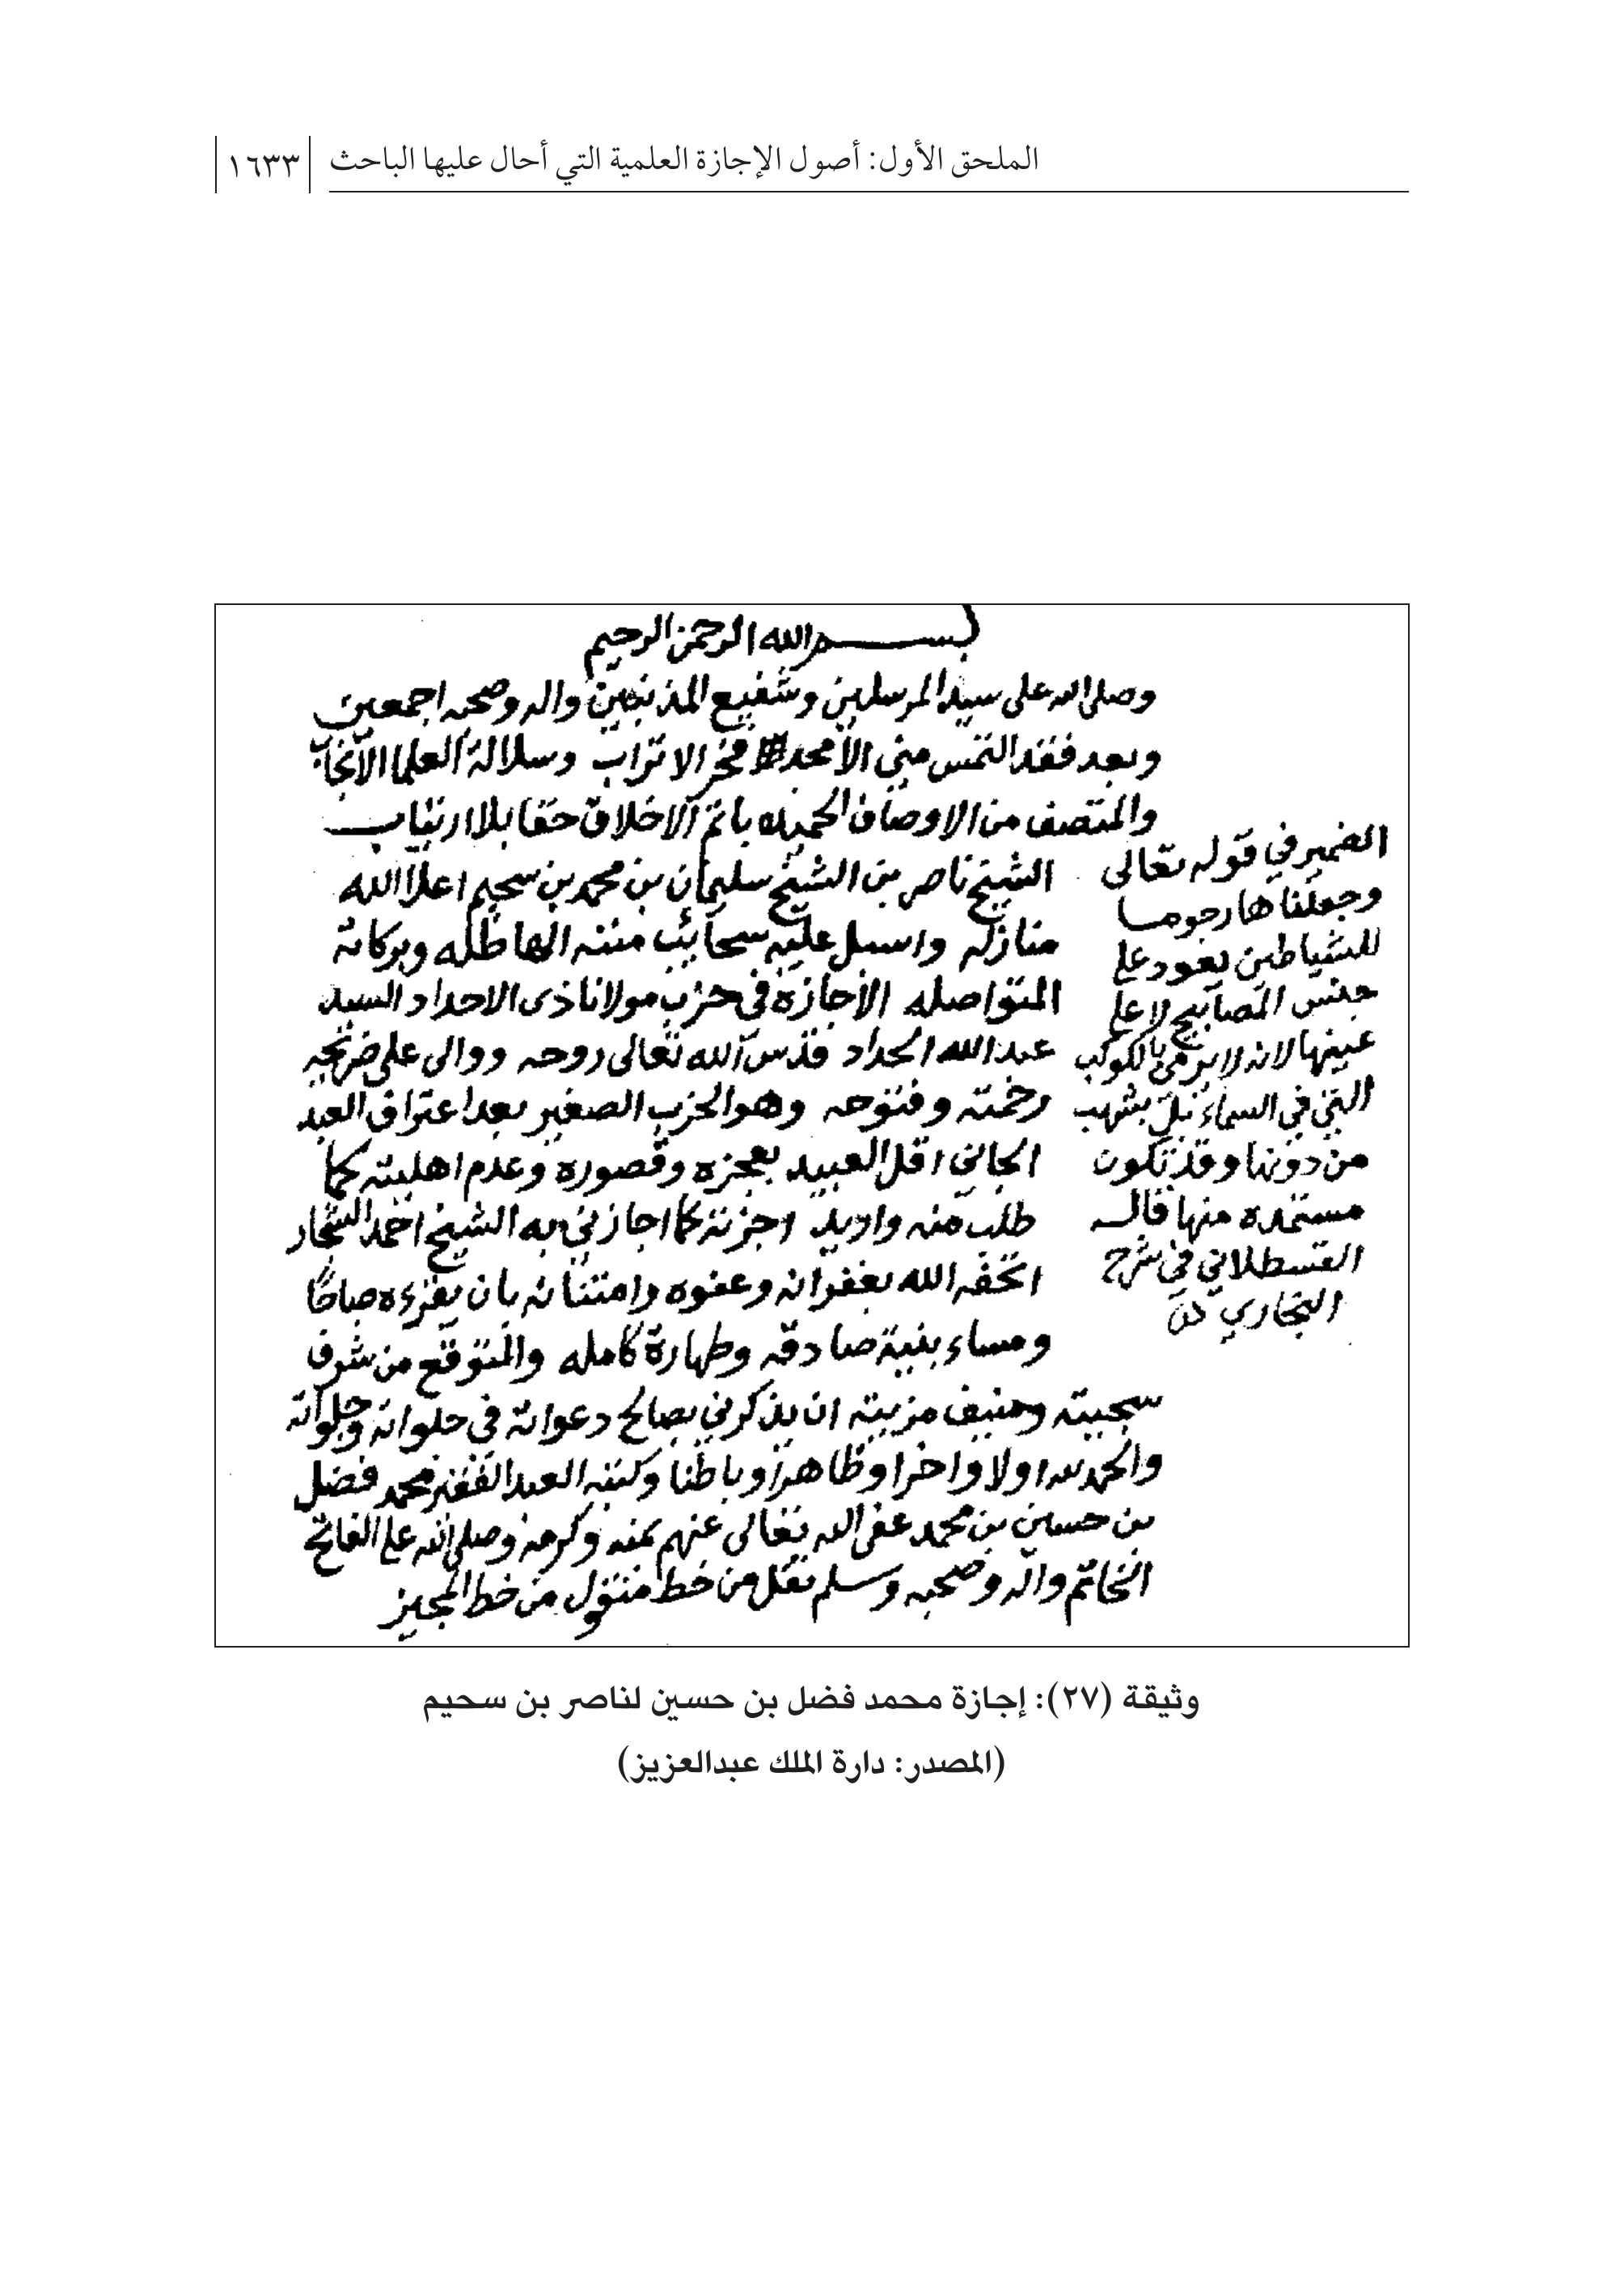 الملحق الأول: أصول الإجازة العلمية التي أحال عليها الباحث
١٦٣٣
بسم الله الرحمن الرحيم
وصلى الله على سيد المرسلين وشفيع المذنبين واله وصحبه اجمعين
وبعد فقد التمس مني الأمجد فخر الاتراب وسلالة العلما الآنجاب
والمتصف من الاوصاف الحميده باتم الاخلاق حقا بلا ارتياب
الشيخ ناصر بن الشيخ سليمان بن محمد بن سحيم اعلا الله
منازله واسبل عليه سحائب مننه الهاطله وبركاته
المتواصله الأجازة في حزب مولانا ذى الاحداد السيد
عبد الله الحداد قدس الله تعالى روحه ووالى على ضريحه
رحمته وفتوحه وهو الحزب الصغير بعد اعتراف العبد
الجاني اقل العبيد بعجزه وقصوره وعدم اهليته كما
طلب منه واريد اجزته كما اجازني به الشيخ احمد
اتحفه الله بغفرانه وعفوه وامتنانه بان يقرءه صباحًا
ومساء بنية صادقه وطهارة كامله والمتوقع من شرف
سجيته ومنيف مزيته ان يذكرني بصالح دعواته في خلواته وجلواته
والحمد لله اولا واخرا وظاهرا وباطنا وكتبه العبد الفقير محمد فضل
بن حسين بن محمد عفى الله تعالى عنهم بمنه وكرمه وصلى الله على الفاتح
الخاتم واله وصحبه وسلم نقل من خط منقول من خط المجيز
الضمير في قوله تعالى
وجعلناها رجوما
للشياطين يعود على
جنس المصابيح لا على
عينها لانه لا يرمى بالكواكب
التي في السماء بل بشهب
من دونها وقد تكون
مستمدة منها قاله
القسطلاني في شرح
البخاري
وثيقة (٢٧): إجازة محمد فضل بن حسين لناصر بن سحيم
(المصدر: دارة الملك عبدالعزيز)